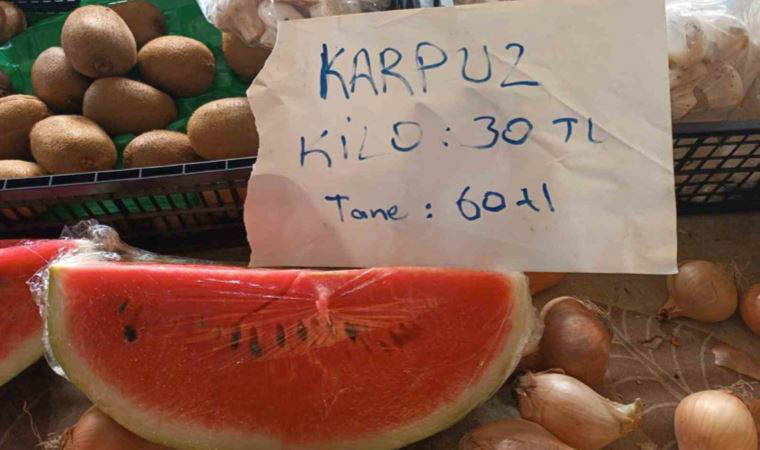 KARPUZ
KiLO : 30 TL
Tane : 60 tl